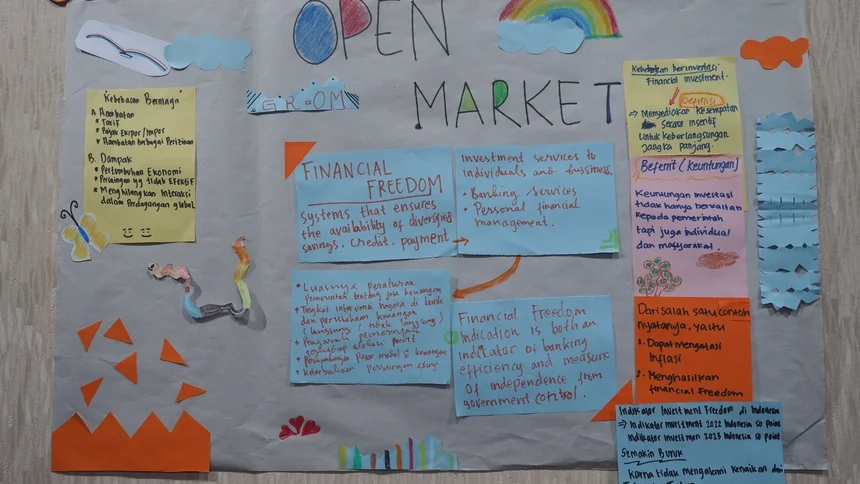 OPEN
MARKET
GROOM
Kebebasan Berniaga
A. Hambatan
* Tarif
* Pajak Ekspor/Impor
* Hambatan berbagai Perizinan
B. Dampak
* Pertumbuhan Ekonomi
* Persaingan yg tidak Efektif
* Menghilangkan Interaksi
dalam Perdagangan global
FINANCIAL
FREEDOM
systems that ensures
the availability of diversified
savings, credit, payment
Investment services to
individuals and bussiness.
• Banking services
• Personal financial
management.
• Luasnya peraturan
pemerintah tentang jasa keuangan
• Tingkat intervensi negara di bank
dan perusahaan keuangan
(langsung / tidak langsung)
• Pengaruh pemerintah
terhadap alokasi kredit
• Perkembangan pasar modal & keuangan
• Keterbukaan persaingan asing
Financial Freedom
Indication is both an
indicator of banking
efficiency and measure
of independence from
government control.
Kebebasan berinvestasi
Financial investment.
Definisi
→ Menyediakan kesempatan
secara insentif
untuk keberlangsungan
jangka panjang.
Befernit (keuntungan)
Keuntungan investasi
tidak hanya bernilai
kepada pemerintah
tapi juga individual
dan masyarakat.
Dari salah satu contoh
nyatanya, yaitu
1. Dapat mengatasi
Inflasi
2. Menghasilkan
financial Freedom
Indikator Investment Freedom di Indonesia
→ Indikator Investment 2022 Indonesia 50 point
Indikator Investmen 2023 Indonesia 50 point
Semakin Buruk
karna tidak mengalami kenaikan dari